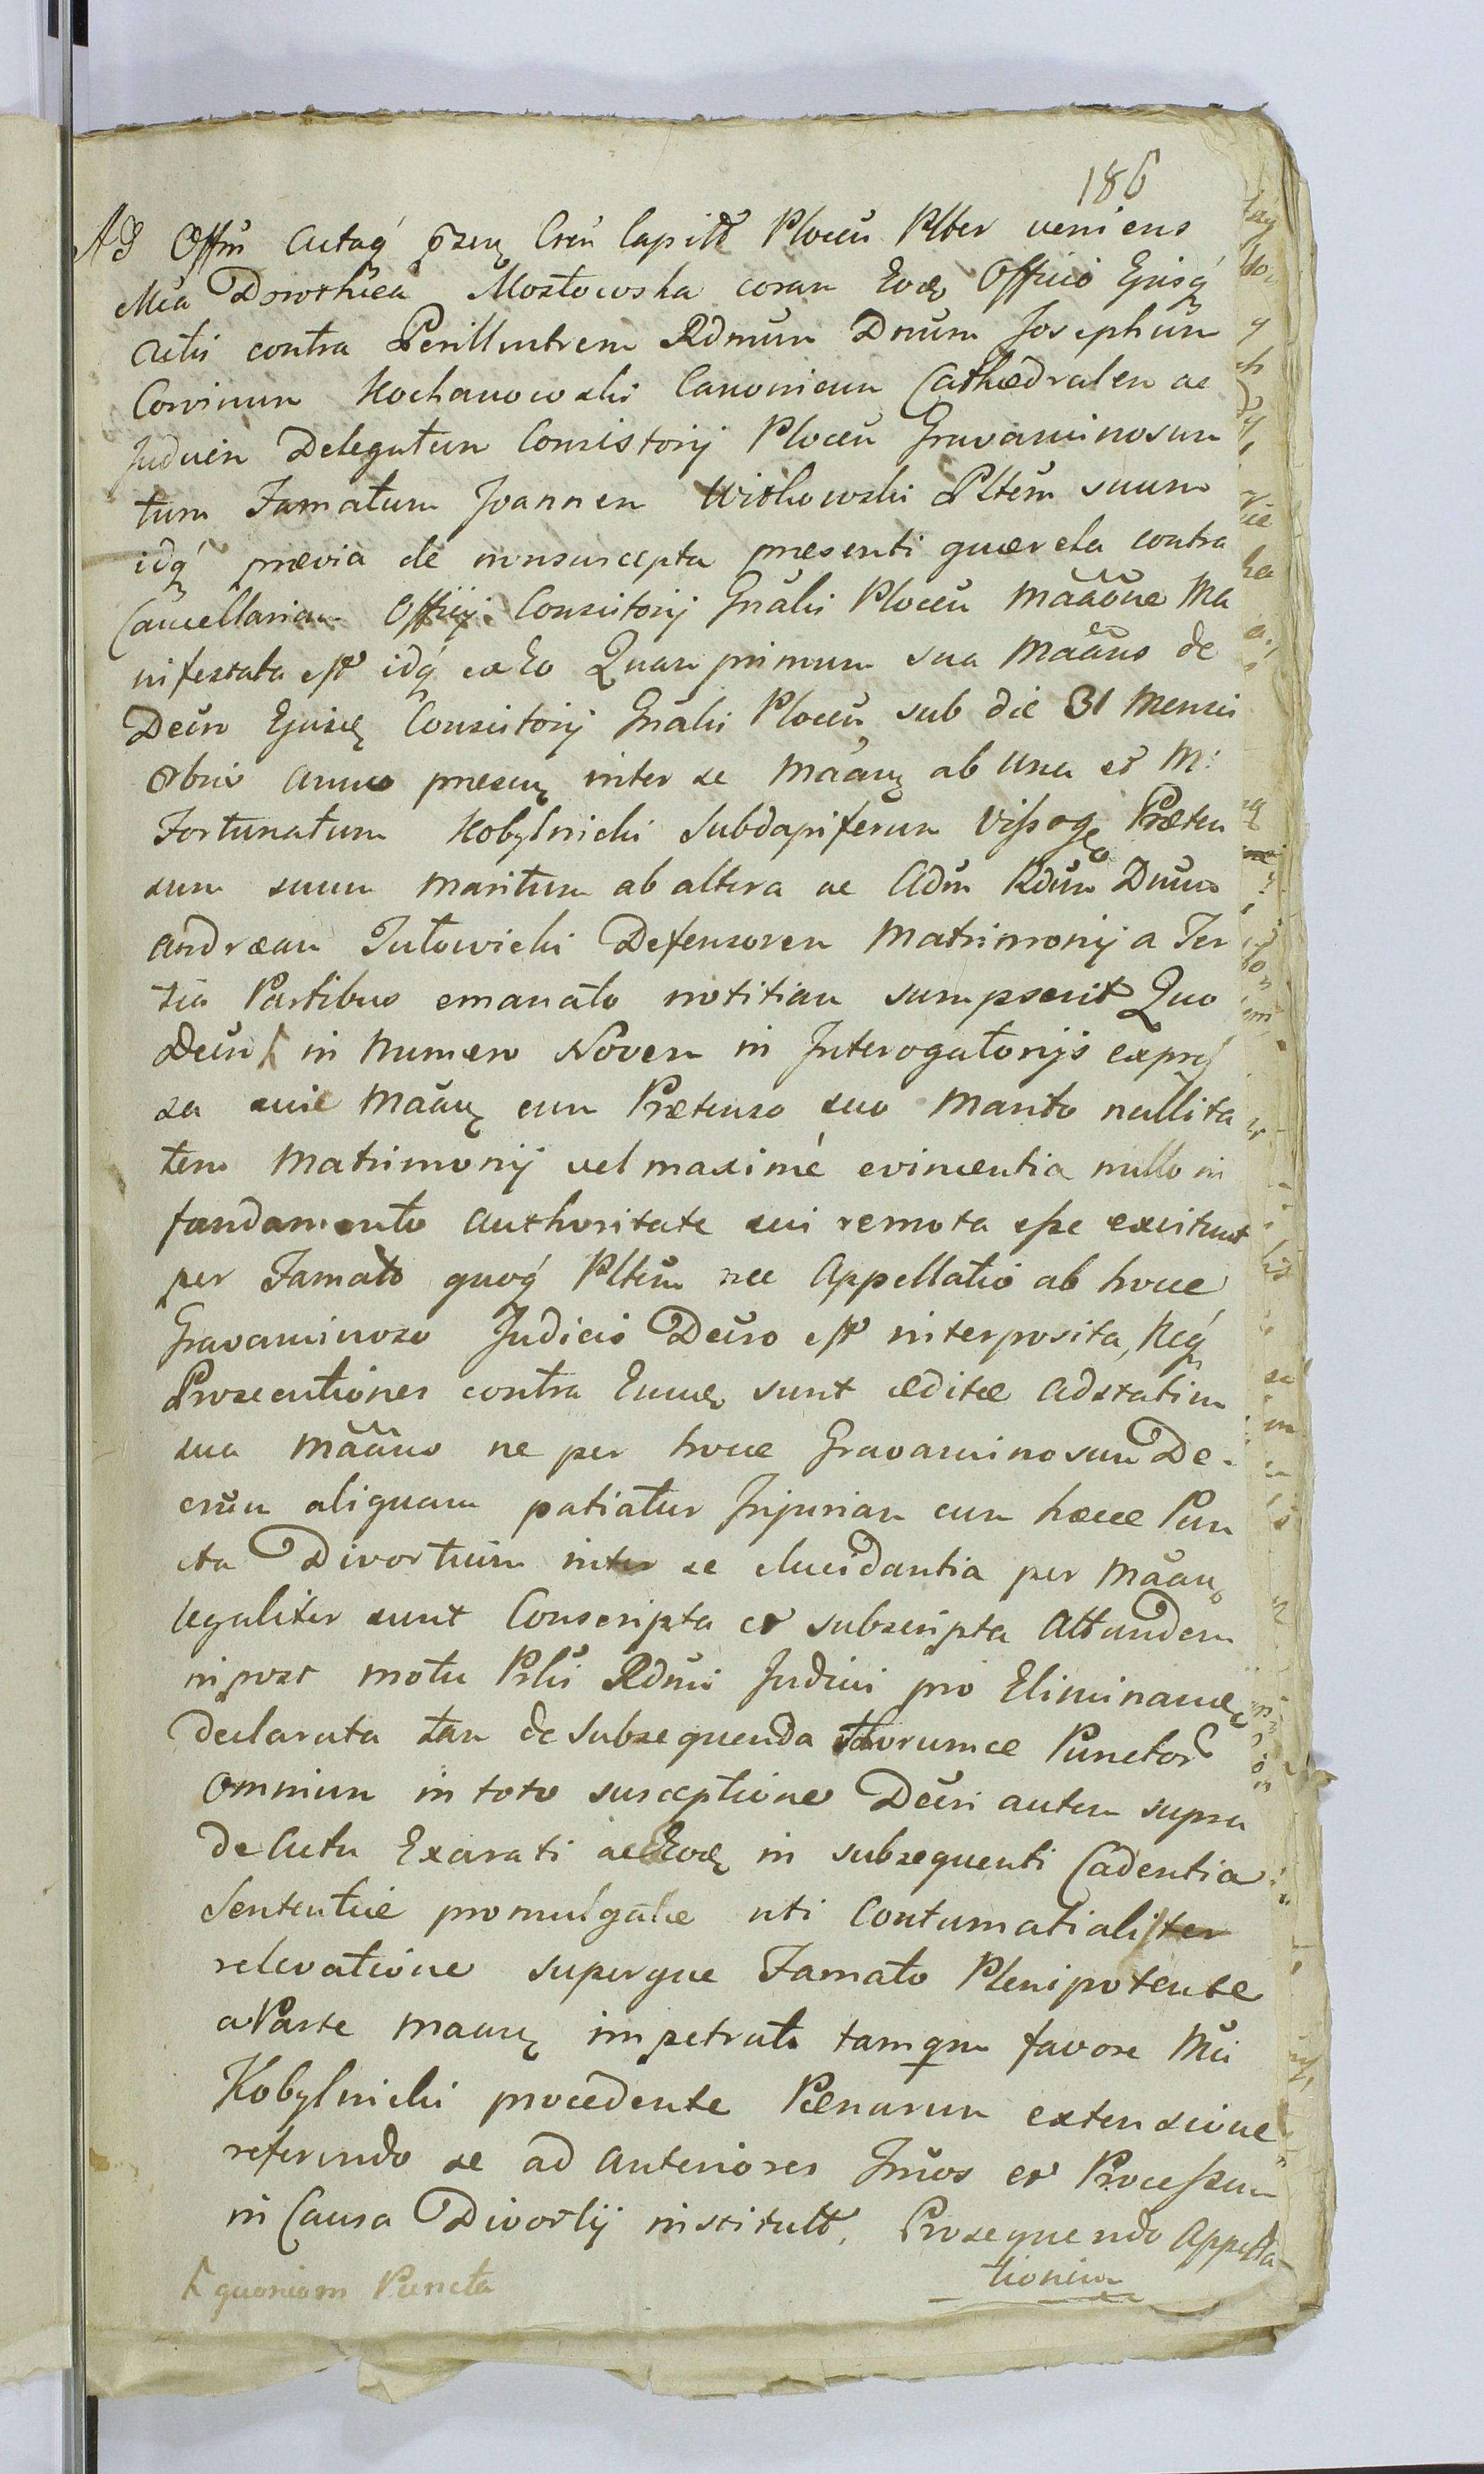 186
Ad Offm Actaq̃ p̃zen Cren Capitl Plocen Plter veniens
Mca Dorothea Mostowska coram Eodẽ Officio Ejusq̃
Actis contra Perillustrem Rdmum Dnum Josephum
Corvinum Kochanowski Canonicum Cathedralem ac
Judicem Delegatum Consistorij Plocen Gravaminosum
tum Famatum Joannem Witkowski Pltem suum
idq̃ prævia de nonsuscepta præsenti quærela contra
Cancellariam Officij Consistorij Gnalis Plocen Mãaõne Ma
nifestata est idq̃ ex Eo Quam primum sua Mãans de
Decro Ejusd Consistorij Gnalis Plocen sub die 31 Mensis
8bris Anno præsen inter se Mãan ab una et M:
Fortunatum Kobylnicki Subdapiferum Vissog Præten
sum suum Maritum ab altera ac Adm Rdum Dnum
Andræam Tutowicki Defensorem Matrimonij a Ter
tia Partibus emanato notitiam sumpserit Quo
Decro in Numero Novem in Interogatorijs expres
sa suie Mãan cum Prætenso suo Marito nullita
tem Matrimonij vel maximè evincentia nullo in
fundamento Authoritate sui remota esse existunt
per Famato quoq̃ Pltem nec Appellatio ab hocce
Gravaminoso Judicis Decro est interposita, Neq̃
Prosecutiones contra Eund sunt æditæ Adstatim
sua Mãans ne per hocce Gravaminosum De-
crum aliquam patiatur Injuriam cum hæcce Pun
cta Divortium inter se elucidantia per Mãan
legaliter sunt Conscripta et subscripta Attandem
inpost motu Prlis Rdmi Judicis pro Eliminand
Declarata tam de Subsequenda Horumce Punctor
Omnium in toto susceptione Decri autem supra
de Actu Exarati ac Eod in subsequenti Cadentia
Sententiæ promulgatæ uti Contumatialiter
relevatione superque Famato Plenipotente
a Parte Maan impetrato tamqm favore Mci
Kobylnicki procedente Pœnarum extensione
referendo se ad Anteriores Inños et Processum
in Causa Divortij institutt. Prosequendo Appella
tionem
quoniam Puncta